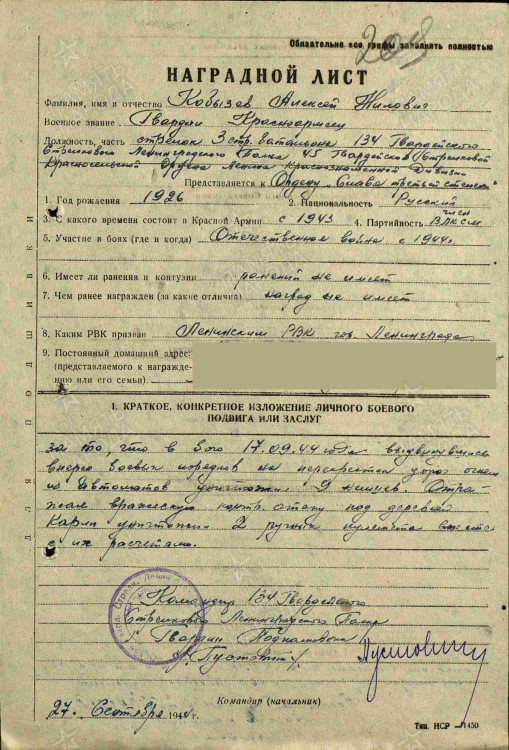 208
Обязательно все графы заполнять полностью
НАГРАДНОЙ ЛИСТ
Фамилия, имя и отчество Кобызев Алексей Нилович
Военное звание Гвардии Красноармеец
Должность, часть стрелок 3 стр. баталиона 134 Гвардейского
Стрелкового Ленинградского Полка 45 Гвардейской Стрелковой
Красносельской Ордена Ленина Краснознаменной Дивизии
Представляется к Ордену "Слава третьей степени"
1. Год рождения 1926 2. Национальность Русский
3. С какого времени состоит в Красной Армии с 1943 4. Партийность член ВЛКСМ
5. Участие в боях (где и когда) Отечественная война с 1944г.
6. Имеет ли ранения и контузии ранений не имеет
7. Чем ранее награжден (за какие отличия) наград не имеет
8. Каким РВК призван Ленинским РВК гор. Ленинграда
9. Постоянный домашний адрес:
(представляемого к награжде-
нию или его семьи)
ДЛЯ ПОДШИВКИ
I. КРАТКОЕ, КОНКРЕТНОЕ ИЗЛОЖЕНИЕ ЛИЧНОГО БОЕВОГО
ПОДВИГА ИЛИ ЗАСЛУГ
за то, что в бою 17.09.44 года выдвинувшись
вперед боевых порядков на перекрестке дорог огнем
из автоматов уничтожил 9 немцев. Отра-
жая вражескую контр атаку под деревней
Карли уничтожил 2 ручных пулемета вместе
с их расчетами.
Командир 134 Гвардейского
Стрелкового Ленинградского Полка
Гвардии Подполковник
Командир (начальник)
27 Сентября 1944 г.
Тип. НСР 1450